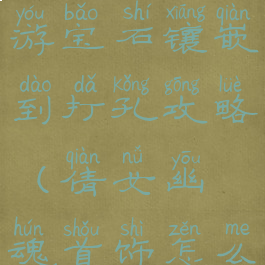 yóu bǎo shí xiāng qiàn
游宝石镶嵌
dào dǎ kǒng gōng lüè
到打孔攻略
qiàn nǚ yōu
(倩女幽
hún shǒu shì zěn me
魂首饰怎么